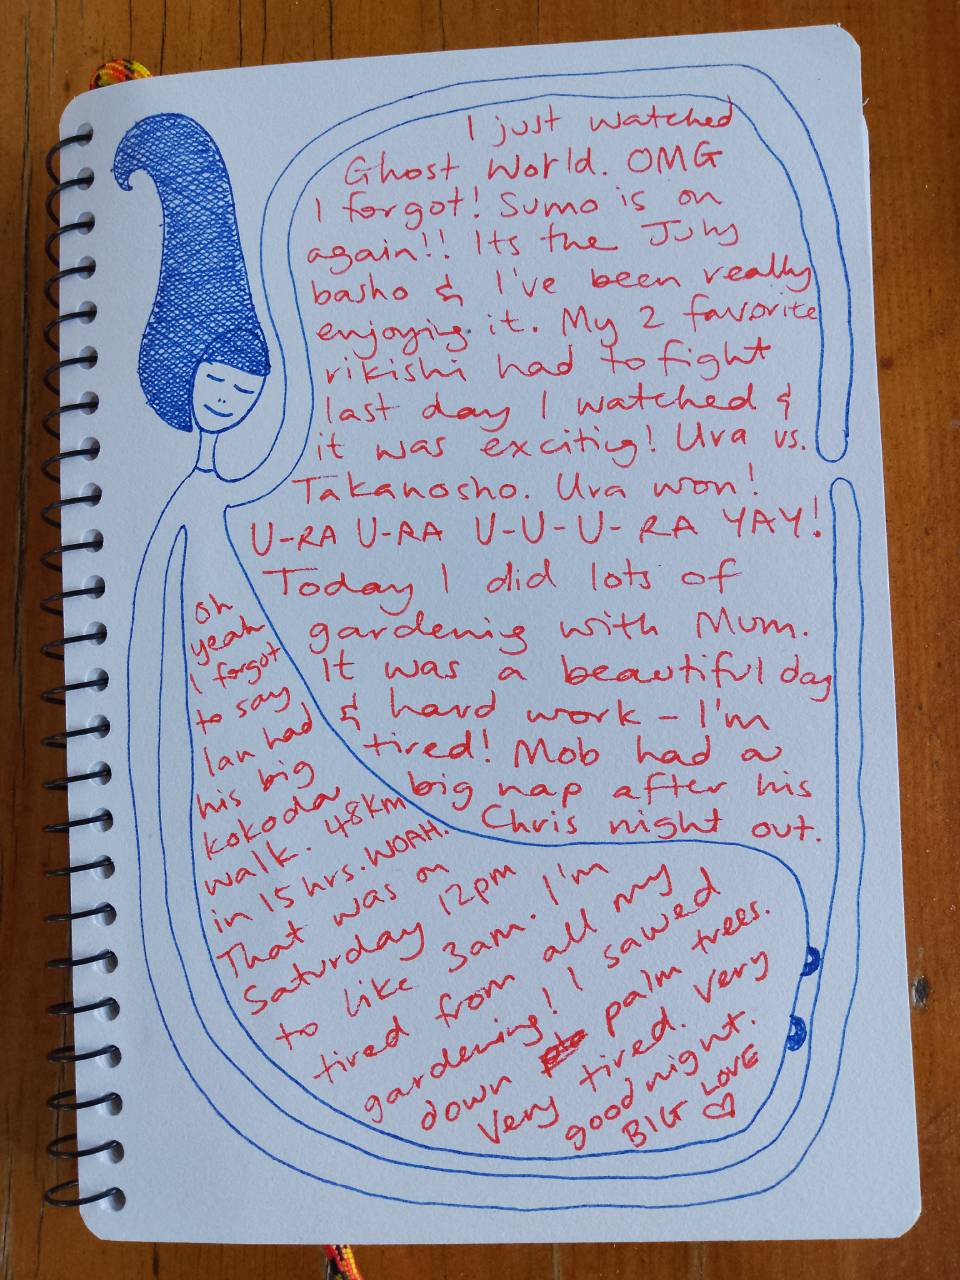 I just watched
Ghost World. OMG
I forgot! Sumo is on
again!! Its the July
basho & I've been really
enjoying it. My 2 favorite
rikishi had to fight
last day I watched &
it was exciting! Ura vs.
Takanosho. Ura won!
U-RA U-RA U-U-U-RA YAY!
Today I did lots of
gardening with Mum.
It was a beautiful day
& hard work - I'm
tired! Mob had a
big nap after his
Chris night out.
Oh
yeah
I forgot
to say
Ian had
his big
kokoda
walk. 48km
in 15 hrs. WOAH.
That was on
Saturday 12pm
to like 3am. I'm
tired from all my
gardening! I sawed
down palm trees.
Very tired. Very
good night.
BIG LOVE
♡